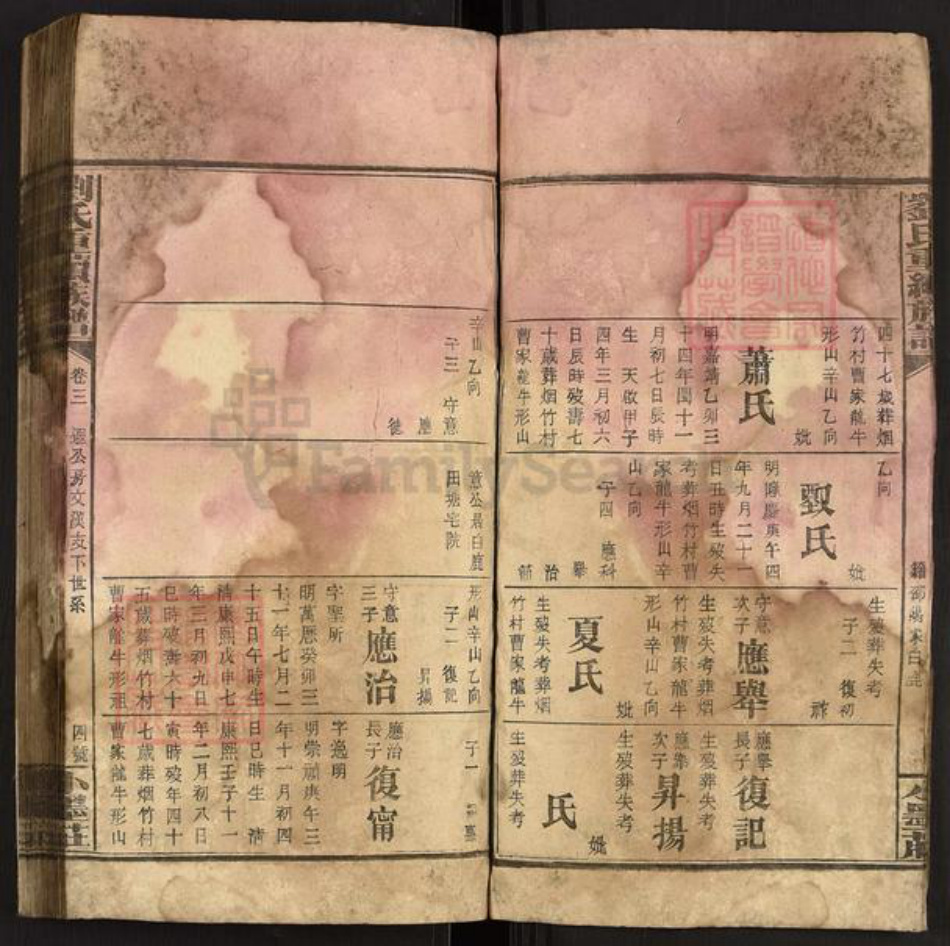 劉氏重續族譜
四十七歲葬烟
竹村曹家龍牛
形山辛山乙向
妣
蕭氏
明嘉靖乙卯三
十四年閏十一
月初七日辰時
生 天啟甲子
四年三月初六
日辰時歿壽七
十歲葬烟竹村
曹家龍牛形山
乙向
妣
劉氏
明隆慶庚午四
年九月二十一
日丑時生歿失
考葬烟竹村曹
家龍牛形山辛
山乙向
子四 應科
舉
治
生歿葬失考
子二 復初
守意
次子
應舉
生歿失考葬烟
竹村曹家龍牛
形山辛山乙向
妣
夏氏
生歿失考葬烟
竹村曹家龍牛
應舉
長子
復記
生歿葬失考
應舉
次子
昇揚
生歿葬失考
妣
氏
生歿葬失考
辛山乙向
子三 守意
應
意公居白鹿
田塘宅院
形山辛山乙向
子二 復記
昇揚
守意
三子
應治
字聖所
明萬曆癸卯三
十一年七月二
十五日午時生
清康熙戊申七
年三月初九日
巳時歿壽六十
五歲葬烟竹村
曹家龍牛形祖
子一
應治
長子
復甯
字逸明
明崇禎庚午三
年十一月初四
日巳時生 清
康熙壬子十一
年二月初八日
寅時歿年四十
七歲葬烟竹村
曹家龍牛形山
劉氏重續族譜
卷三
遐公房文漢支下世系
四號
小墨莊
FamilySearch